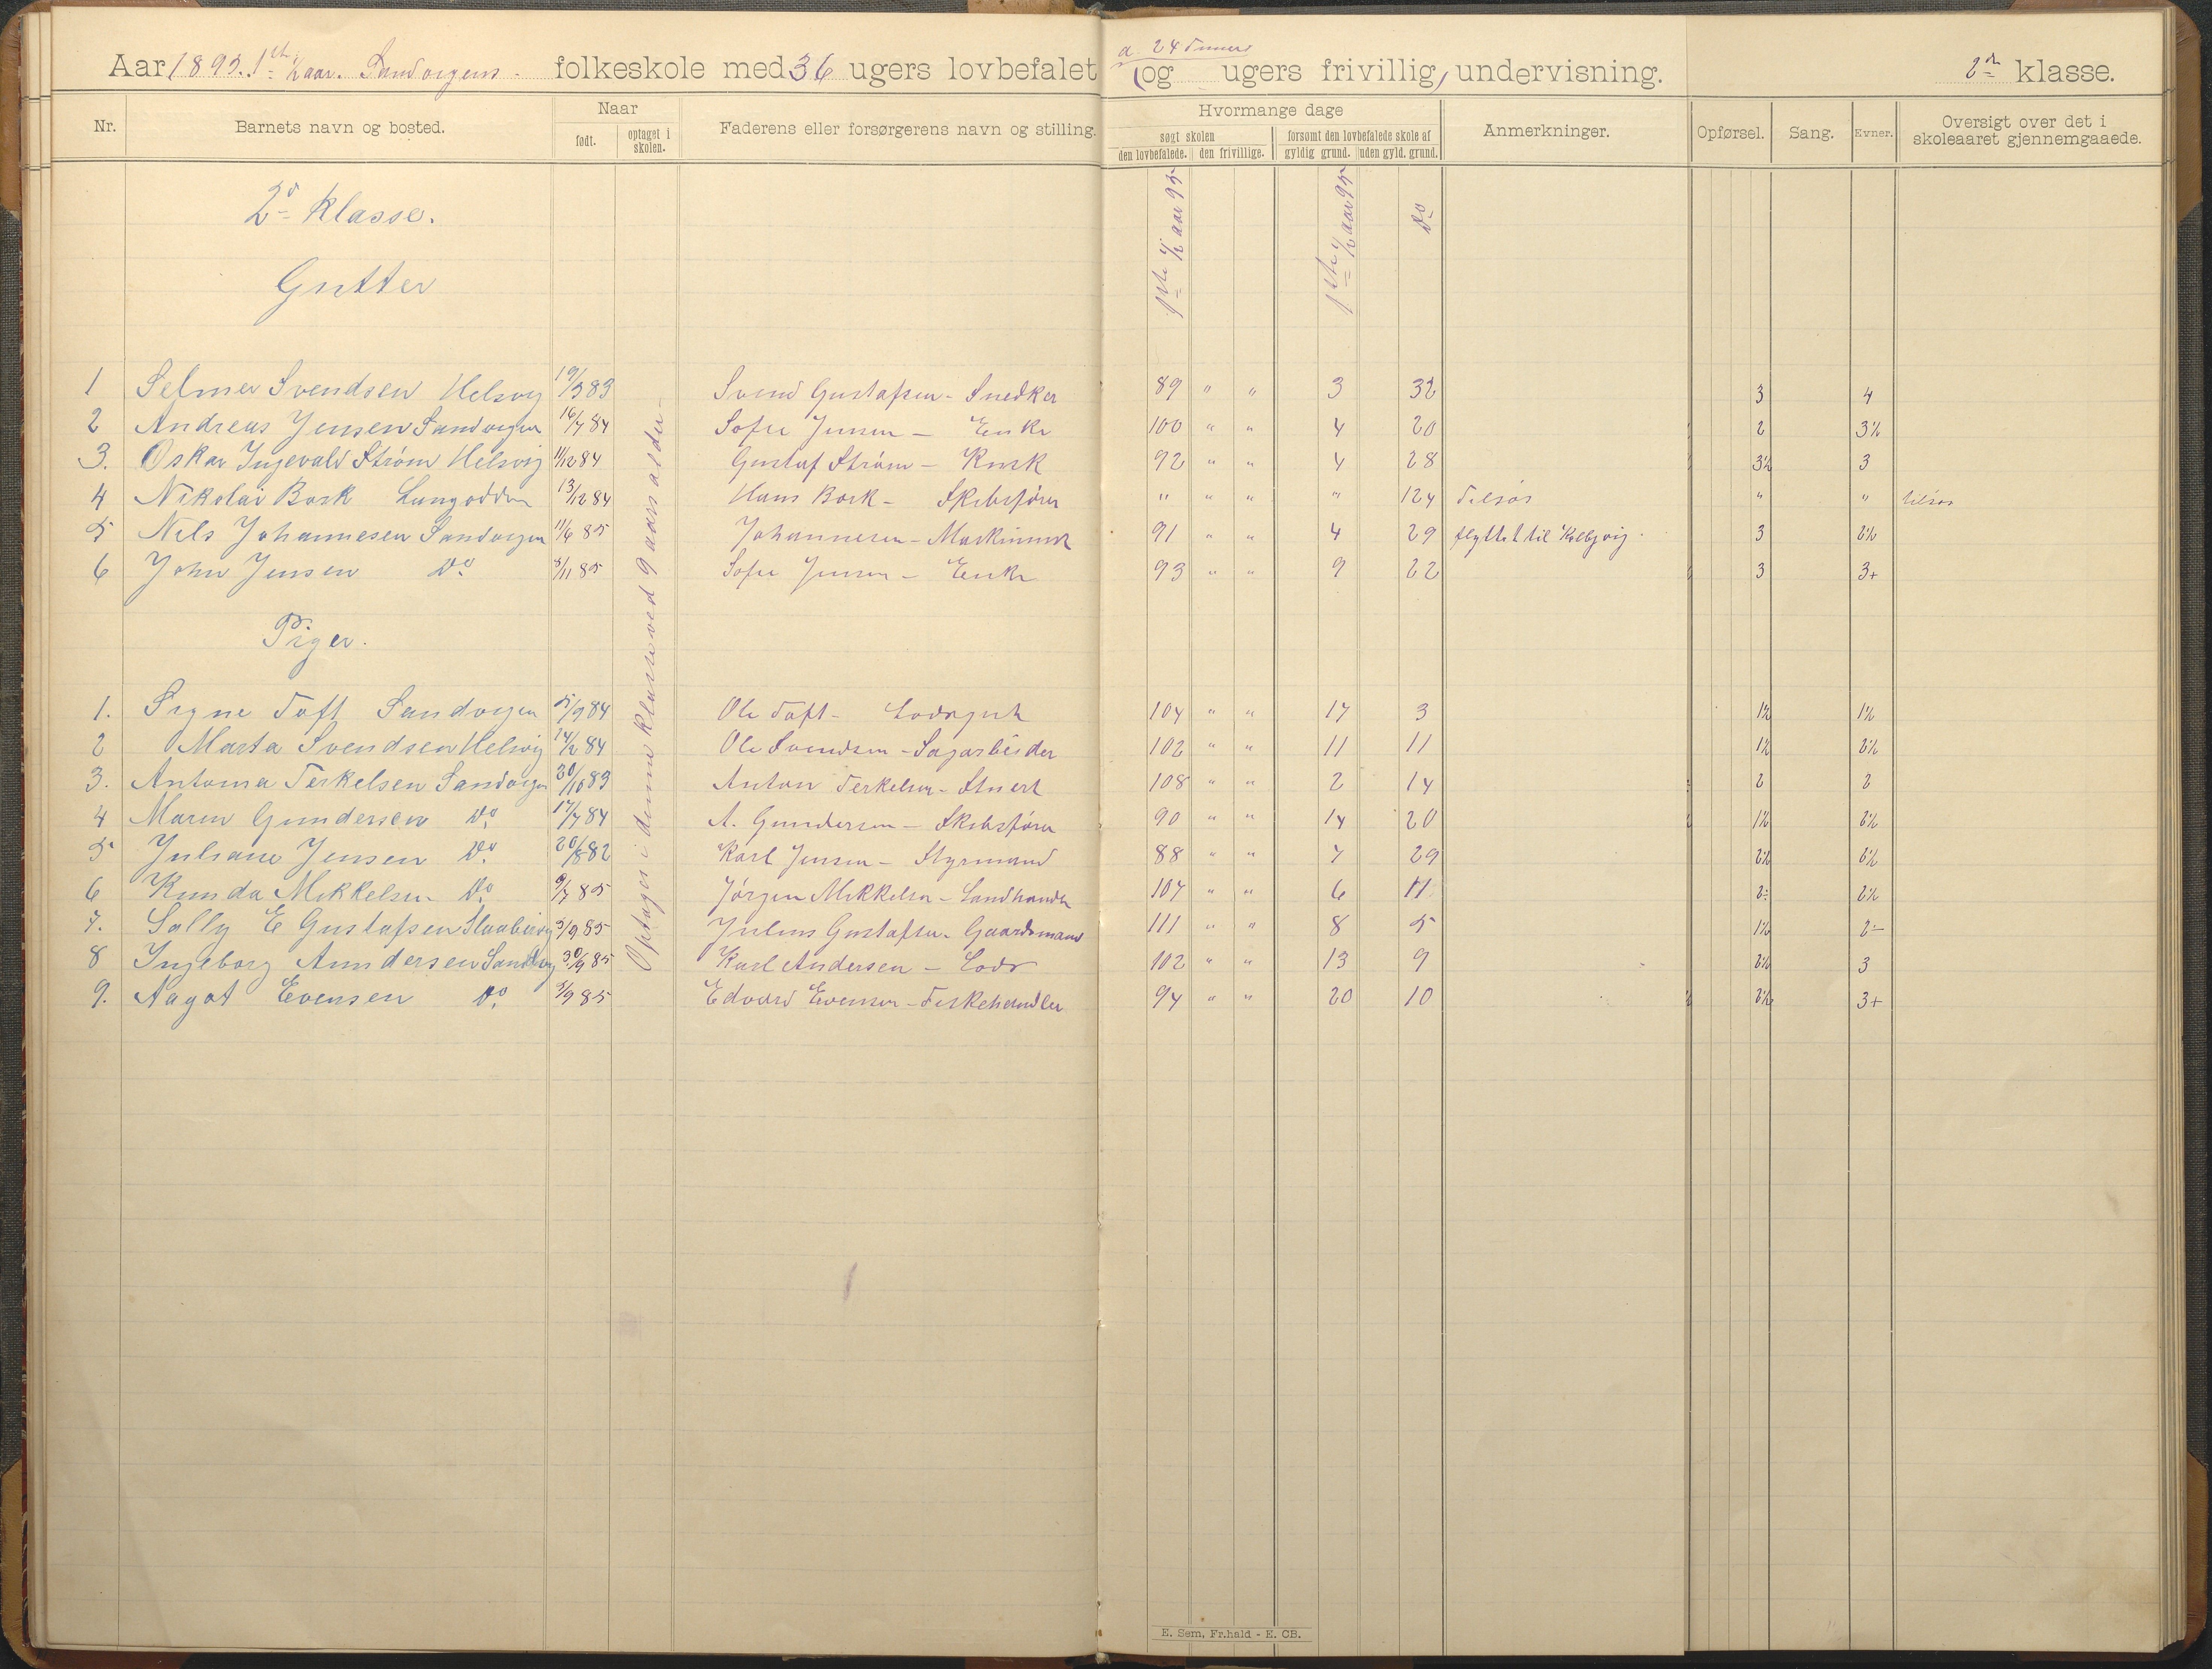 Aar 1895. 1ste ½ aar. Sandvigens folkeskole med 36 ugers lovbefalet (og ugers frivillig) undervisning. 2den klasse.
a 24 timer
Nr. Barnets navn og bosted. Naar født. optaget i skolen. Faderens eller forsørgerens navn og stilling.
Hvormange dage søgt skolen den lovbefalede. den frivillige. forsømt den lovbefalede skole af gyldig grund. uden gyld. grund. Anmerkninger. Opførsel. Sang. Evner. Oversigt over det i skoleaaret gjennemgaaede.
1ste ½ aar 95 1ste ½ aar 95 do
2den klasse.
Gutter
Optages i denne klasse ved 9 aars alder
1 Selmer Svendsen Helsvig 19/3 83 Svend Gustafsen - Snedker 89 " " 3 32 3 4
2 Andreas Jensen Sandvigen 16/7 84 Sofie Jensen - Enke 100 " " 4 20 2 3½
3. Oskar Ingevald Strøm Helsvig 11/12 84 Gustaf Strøm - Kusk 92 " " 4 28 3½ 3
4 Nikolai Bork Langodden 13/12 84 Hans Bork - Skibsfører " " " " 124 tilsøs " " tilsøs
5 Nils Johannesen Sandvigen 11/6 85 Johannesen - Maskinist 91 " " 4 29 flyttet til Kolbjvig. 3 2½
6 John Jensen Do 5/11 85 Sofie Jensen - Enke 93 " " 9 22 3 3+
Piger.
1. Signe Toft Sandvigen 5/9 84 Ole Toft - Lodsgut 104 " " 17 3 1½ 1½
2 Marta Svendsen Helsvig 14/2 84 Ole Svendsen - Sagarbeider 102 " " 11 11 1½ 2½
3. Antonia Terkelsen Sandvigen 30/10 83 Anton Terkelsen - Stuert 108 " " 2 14 2 2
4 Maren Gundersen Do 17/7 84 A. Gundersen - Skibsfører 90 " " 14 20 1½ 2½
5 Juliane Jensen Do 20/8 82 Karl Jensen - Styrmand 88 " " 7 29 2½ 2½
6 Kunda Mikkelsen Do 9/7 85 Jørgen Mikkelsen - Landhandler 107 " " 6 11 2- 2½
7. Sally E Gustafsen 5/9 85 Julius Gustafsen - Gaardsmand 111 " " 8 5 1½ 2-
8 Ingeborg Andersen Sandvig 30/9 85 Karl Andersen - Lods 102 " " 13 9 2½ 3
9. Aagot Evensen Do 3/9 85 Edvard Evensen - Fiskehandler 94 " " 20 10 2½ 3+
E. Sem, Fr.hald - E. CB.